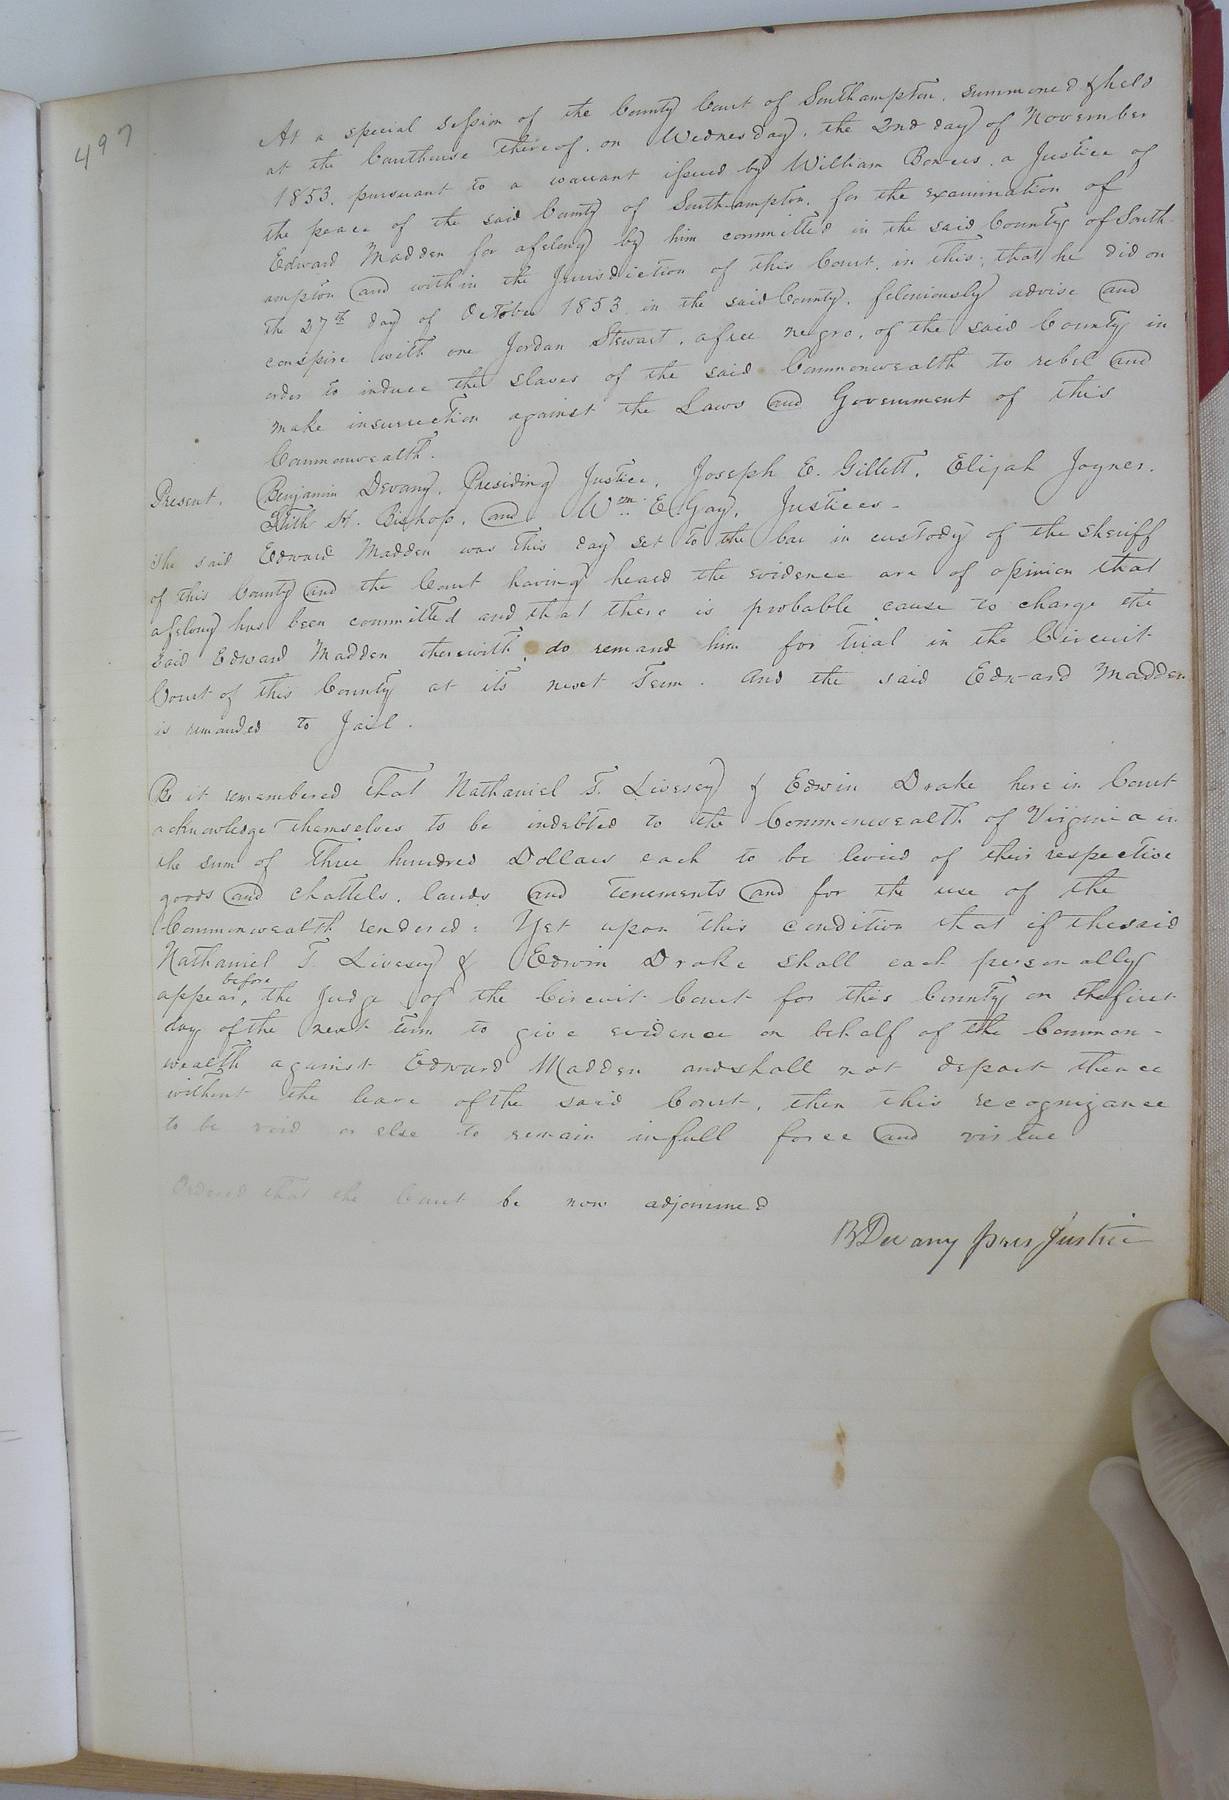 497
At a special session of the County Court of Southampton, summoned & held
at the Courthouse thereof, on Wednesday, the 2nd day of November
1853, pursuant to a warrant issued by William Bowers, a Justice of
the peace of the said County of Southampton, for the examination of
Edward Madden for a felony by him committed in the said County of South-
ampton and within the Jurisdiction of this Court, in this, that he did on
the 27th day of October 1853 in the said County, feloniously advise and
conspire with one Jordan Stewart, a free negro, of the said County in
order to induce the slaves of the said Commonwealth to rebel and
make insurrection against the Laws and Government of this
Commonwealth.
Present, Benjamin Devany, Presiding Justice, Joseph E. Gillett, Elijah Joyner,
H. Bishop, and Wm. E. Gay, Justices -
The said Edward Madden was this day set to the bar in custody of the Sheriff
of this County and the Court having heard the evidence are of opinion that
a felony has been committed and that there is probable cause to charge the
said Edward Madden therewith, do remand him for trial in the Circuit
Court of this County at its next Term. And the said Edward Madden
is remanded to Jail.
Be it remembered that Nathaniel T. Livesey & Edwin Drake here in Court
acknowledge themselves to be indebted to the Commonwealth of Virginia in
the sum of Three hundred Dollars each to be levied of their respective
goods and chattels, lands and tenements and for the use of the
Commonwealth rendered: Yet upon this condition that if the said
Nathaniel T. Livesey & Edwin Drake shall each personally
before
appear, the Judge of the Circuit Court for this County on the first
day of the next term to give evidence on behalf of the Common-
wealth against Edward Madden and shall not depart thence
without the leave of the said Court, then this recognizance
to be void or else to remain in full force and virtue
Ordered that the Court be now adjourned
B Devany pres Justice